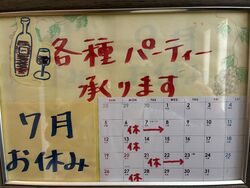 各種パーティー
承ります
7月
お休み
SUN MON TUE WED THU FRI SAT
5 6 7 8 9 10 11
休→
12 13 14 15 16 17 18
休
19 20 21 22 23 24 25
休→
26 27 28 29 30 31
休